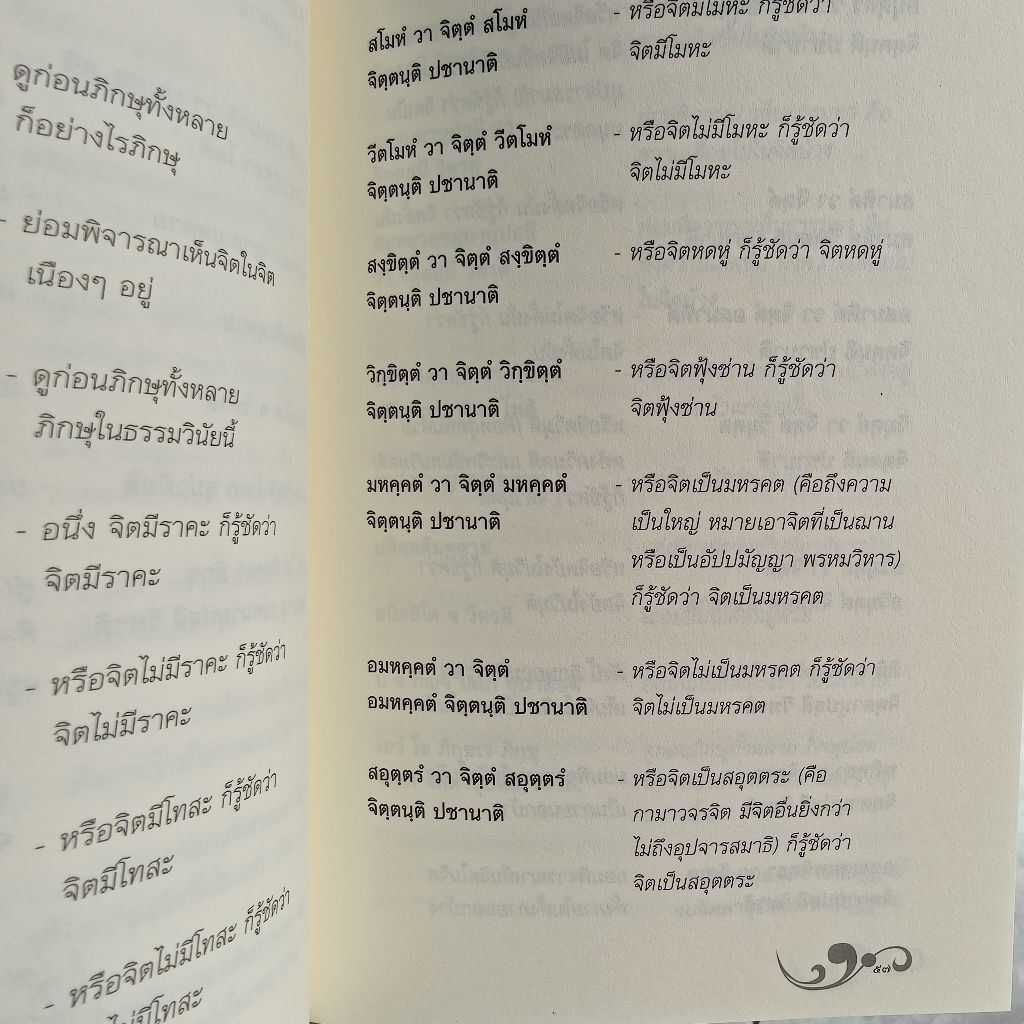 ดูก่อนภิกษุทั้งหลาย
ก็อย่างไรภิกษุ
- ย่อมพิจารณาเห็นจิตในจิต
เนืองๆ อยู่
- ดูก่อนภิกษุทั้งหลาย
ภิกษุในธรรมวินัยนี้
- อนึ่ง จิตมีราคะ ก็รู้ชัดว่า
จิตมีราคะ
- หรือจิตไม่มีราคะ ก็รู้ชัดว่า
จิตไม่มีราคะ
- หรือจิตมีโทสะ ก็รู้ชัดว่า
จิตมีโทสะ
- หรือจิตไม่มีโทสะ ก็รู้ชัดว่า
ไม่มีโทสะ
สโมหํ วา จิตฺตํ สโมหํ - หรือจิตมีโมหะ ก็รู้ชัดว่า
จิตฺตนฺติ ปชานาติ จิตมีโมหะ
วีตโมหํ วา จิตฺตํ วีตโมหํ - หรือจิตไม่มีโมหะ ก็รู้ชัดว่า
จิตฺตนฺติ ปชานาติ จิตไม่มีโมหะ
สงฺขิตฺตํ วา จิตฺตํ สงฺขิตฺตํ - หรือจิตหดหู่ ก็รู้ชัดว่า จิตหดหู่
จิตฺตนฺติ ปชานาติ
วิกฺขิตฺตํ วา จิตฺตํ วิกฺขิตฺตํ - หรือจิตฟุ้งซ่าน ก็รู้ชัดว่า
จิตฺตนฺติ ปชานาติ จิตฟุ้งซ่าน
มหคฺคตํ วา จิตฺตํ มหคฺคตํ - หรือจิตเป็นมหรคต (คือถึงความ
จิตฺตนฺติ ปชานาติ เป็นใหญ่ หมายเอาจิตที่เป็นฌาน
หรือเป็นอัปปมัญญา พรหมวิหาร)
ก็รู้ชัดว่า จิตเป็นมหรคต
อมหคฺคตํ วา จิตฺตํ - หรือจิตไม่เป็นมหรคต ก็รู้ชัดว่า
อมหคฺคตํ จิตฺตนฺติ ปชานาติ จิตไม่เป็นมหรคต
สอุตฺตรํ วา จิตฺตํ สอุตฺตรํ - หรือจิตเป็นสอุตตระ (คือ
จิตฺตนฺติ ปชานาติ กามาวจรจิต มีจิตอื่นยิ่งกว่า
ไม่ถึงอุปจารสมาธิ) ก็รู้ชัดว่า
จิตเป็นสอุตตระ
๕๗